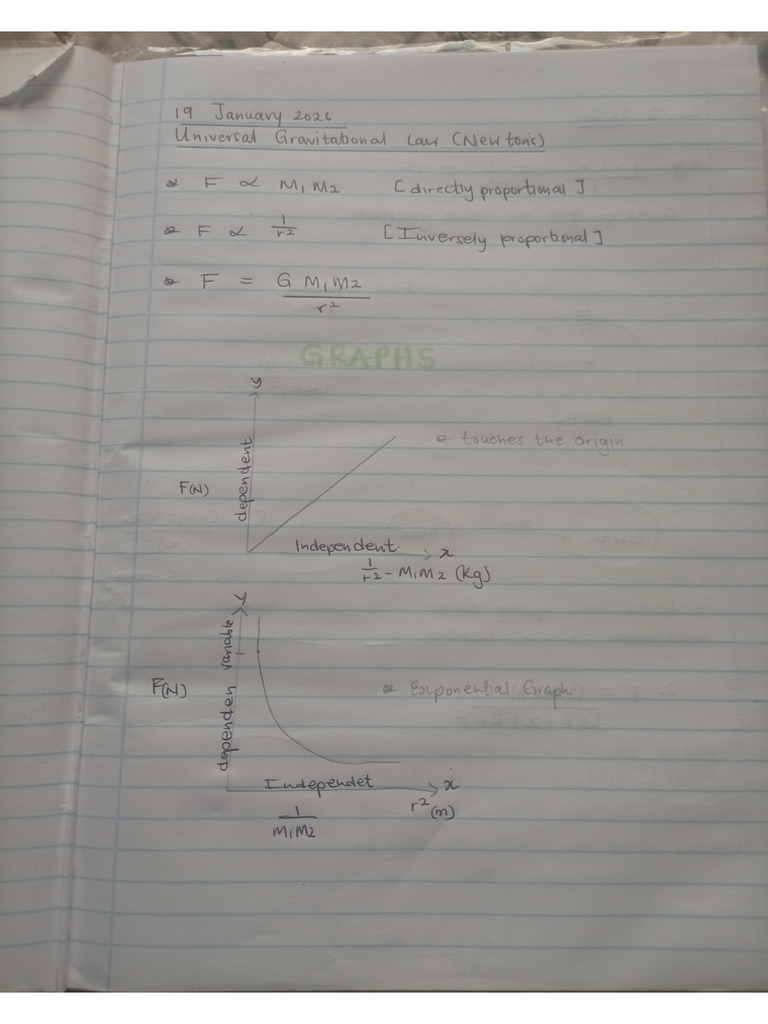 19 January 2026
Universal Gravitational Law (Newton's)
* F ∝ M1 M2 [directly proportional]
* F ∝ 1/r² [Inversely proportional]
* F = G M1M2 / r²
GRAPHS
y
dependent
F(N)
* touches the origin
Independent. x
1/r² - M1M2 (kg)
y
dependen variable
F(N)
* Exponential Graph
Independet x
1/M1M2 r² (m)